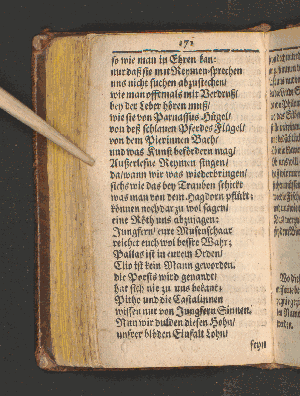 172
so wie man in Ehren kan:
nur daß sie mit Reymen-sprechen
uns nicht suchen abzustechen/
wie man offtermals mit Verdruß/
bey der Leber hören muß/
wie sie von Parnassus Hügel/
von deß schlauen Pferdes Flügel/
von dem Pierinnen Bach/
und was Kunst befördern mag/
Außerlesne Reymen singen/
da/wann wir was wiederbringen/
sichs wie das bey Trauben schickt
was man von dem Hagdorn pflückt;
können noch dar zu wol sagen/
eine Röth uns abzujagen:
Jungfern/ eure Musenschaar
reichet euch wol besire Wahr;
Pallas ist in eurem Orden/
Clio ist kein Mann geworden.
die Poesis wird genant/
hat sich nie zu uns bekant;
Pitho und die Castalinnen
wissen nur von Jungfern Sinnen.
Man wir dulden diesen Hohn/
unsrer blöden Einfalt Lohn/
seyn